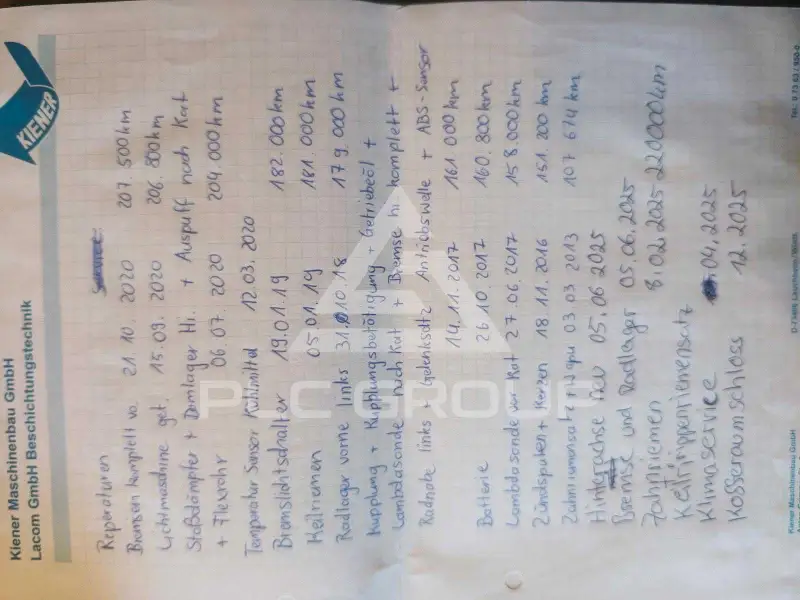 Kiener Maschinenbau GmbH
Lacom GmbH Beschichtungstechnik
KIENER
Reparaturen
Bremsen komplett vo. 21.10.2020 207.500km
Lichtmaschine get. 15.09.2020 206.800km
Stoßdämpfer + Domlager Hi. + Auspuff nach Kat
+ Flexrohr 06.07.2020 204.000km
Temperatur Sensor Kühlmittel 12.03.2020
Bremslichtschalter 19.01.19 182.000km
Keilriemen 05.01.19 181.000km
Radlager vorne links 31.10.18 179.000km
Kupplung + Kupplungsbetätigung + Getriebeöl +
Lambdasonde nach Kat + Bremse hi. komplett +
Radnabe links + Gelenksatz Antriebswelle + ABS-Sensor
14.11.2017 161.000km
Batterie 26.10.2017 160.800km
Lambdasonde vor Kat 27.06.2017 158.000km
Zündspulen + Kerzen 18.11.2016 151.200km
Zahnriemensatz + Wapu 03.03.2013 107 674km
Hinterachse neu 05.06.2025
Bremse und Radlager 05.06.2025
Zahnriemen 8.02.2025 220000km
Keilrippenriemensatz
Klimaservice 04.2025
Kofferaumschloss 12.2025
PLC GROUP
Kiener Maschinenbau GmbH